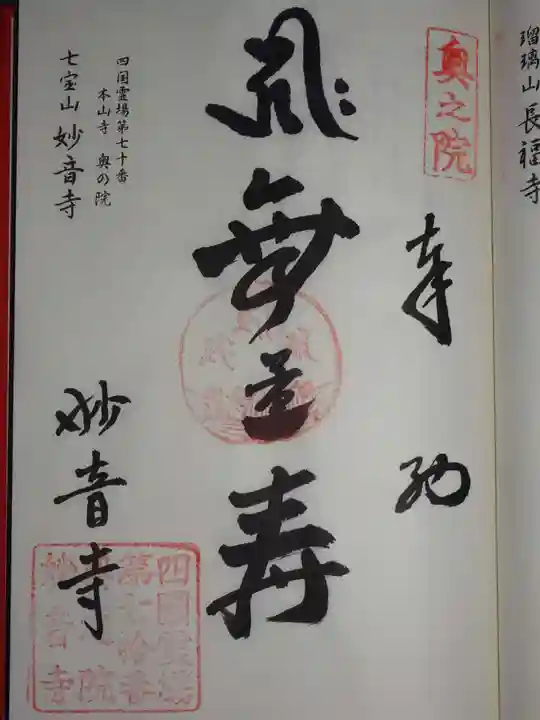 瑠璃山長福寺
奥之院
奉納
無量寿
四国霊場第七十番
本山寺 奥の院
七宝山 妙音寺
妙音寺
四國霊場
第七拾番
奥之院
妙音寺